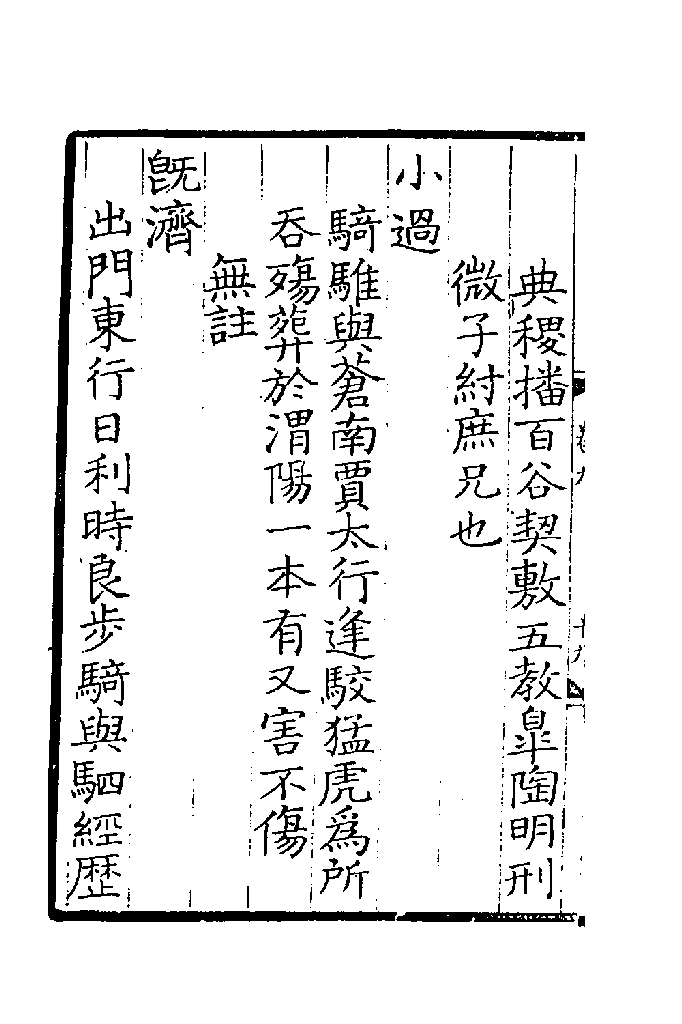 典稷播百谷契敷五教臯陶明刑
微子紂庶兄也
小過
騎騅與蒼南賈太行逢駮猛虎爲所
吞殤葬於渭陽一本有又害不傷
無註
旣濟
出門東行日利時良步騎與駟經歴